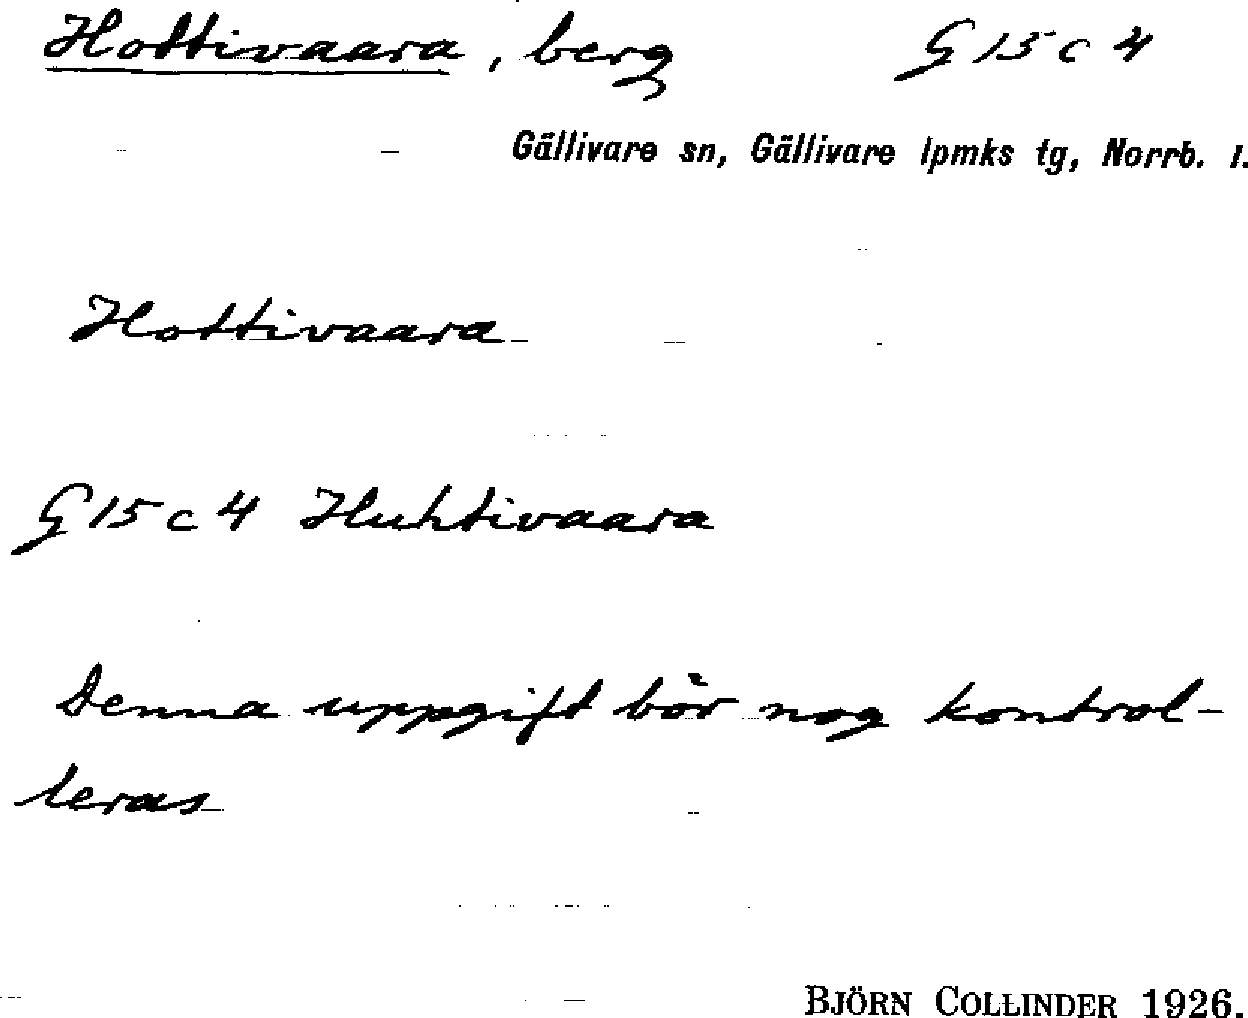 Hottivaara, berg G 15 c 4
Gällivare sn, Gällivare lpmks tg, Norrb. l.
Hottivaara
G 15 c 4 Huhtivaara
Denna uppgift bör nog kontrol-
leras
BJÖRN COLLINDER 1926.